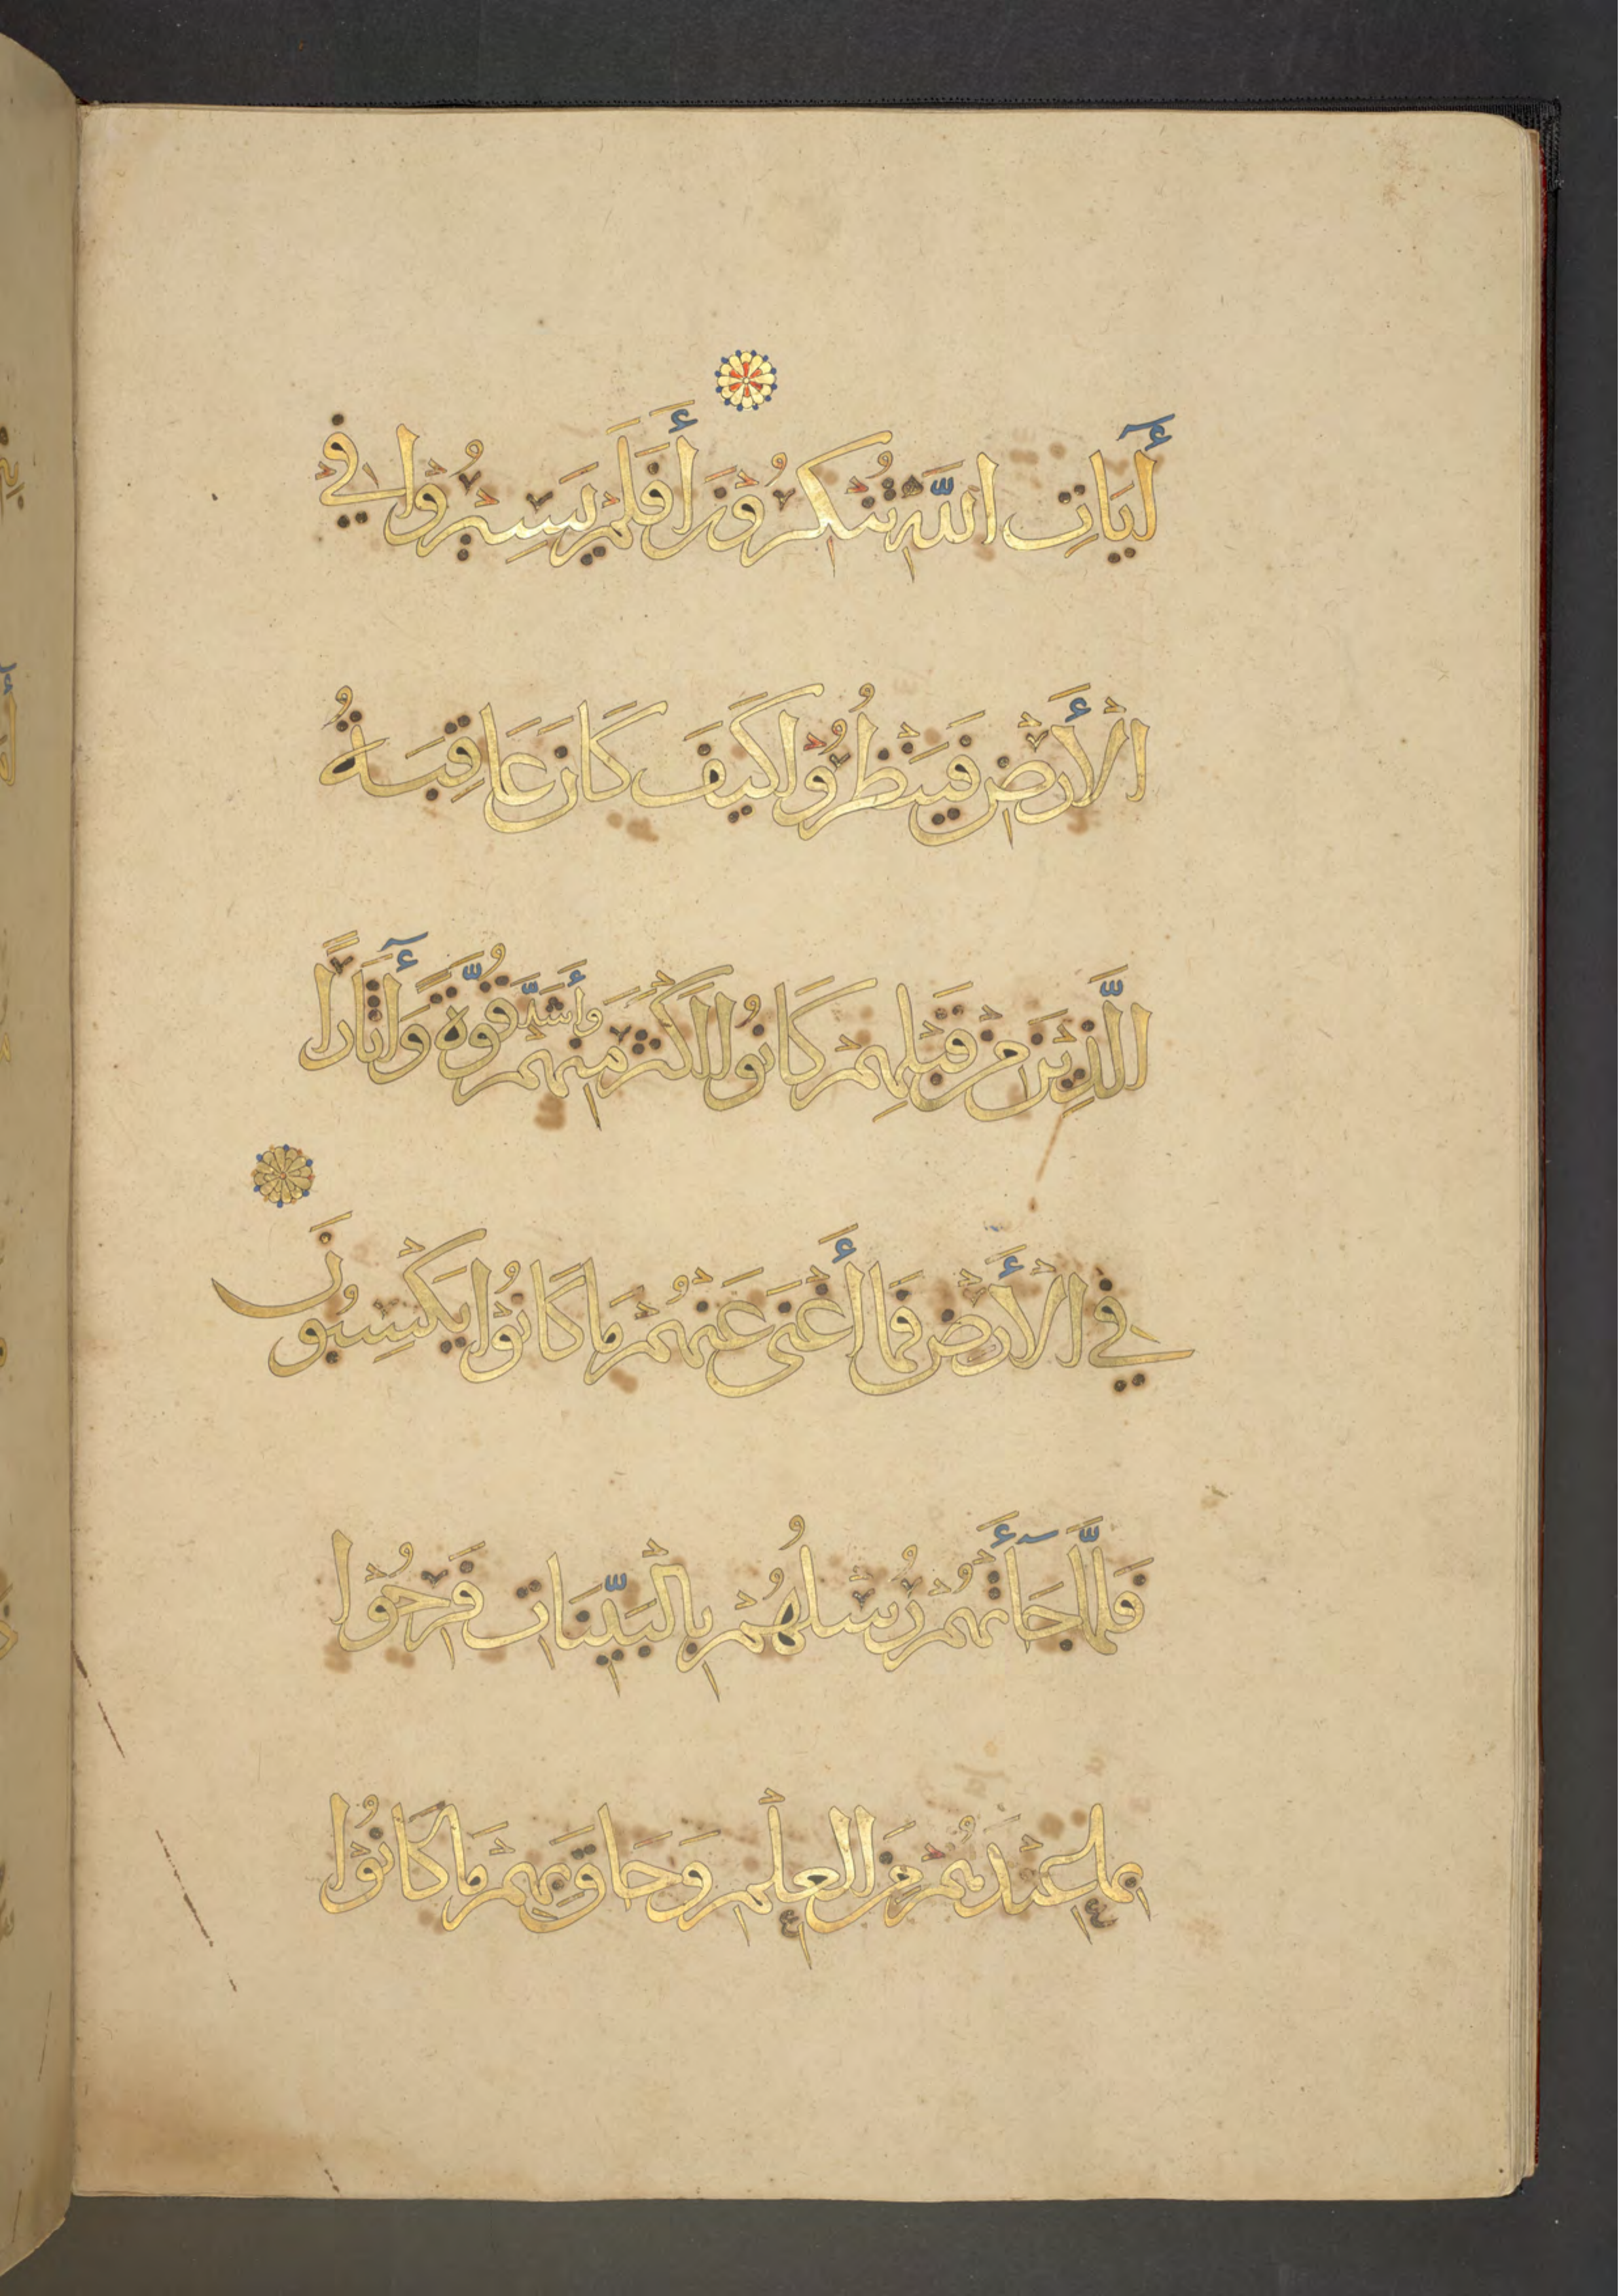 أٓيَاتِ اللَّهِ تُنْكِرُوْنَ أَفَلَمْ يَسِيْرُوْا فِيْ
الْأَرْضِ فَيَنْظُرُوْا كَيْفَ كَانَ عَاقِبَةُ
الَّذِيْنَ مِنْ قَبْلِهِمْ كَانُوْا أَكْثَرَ مِنْهُمْ وَأَشَدَّ قُوَّةً وَأٓثَارًا
فِي الْأَرْضِ فَمَا أَغْنَى عَنْهُمْ مَا كَانُوْا يَكْسِبُوْنَ
فَلَمَّا جَآءَتْهُمْ رُسُلُهُمْ بِالْبَيِّنَاتِ فَرِحُوْا
بِمَا عِنْدَهُمْ مِنَ الْعِلْمِ وَحَاقَ بِهِمْ مَا كَانُوْا